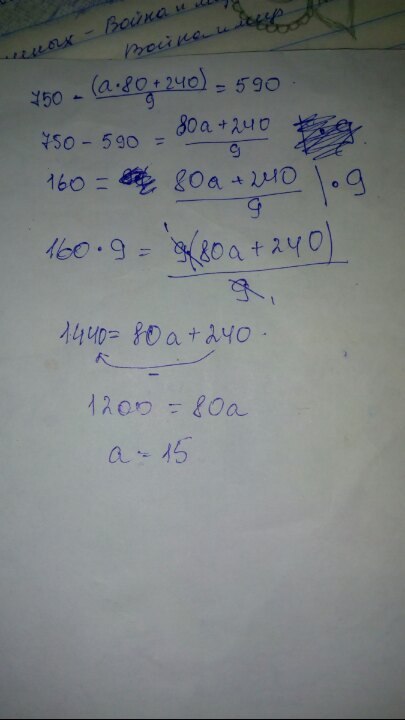 Война и мир
Война и мир
750 - (a·80+240)/9 = 590
750 - 590 = 80a+240/9
160 = 80a+240/9 | · 9
160 · 9 = 9(80a+240)/9
1440 = 80a + 240
-
1200 = 80a
a = 15